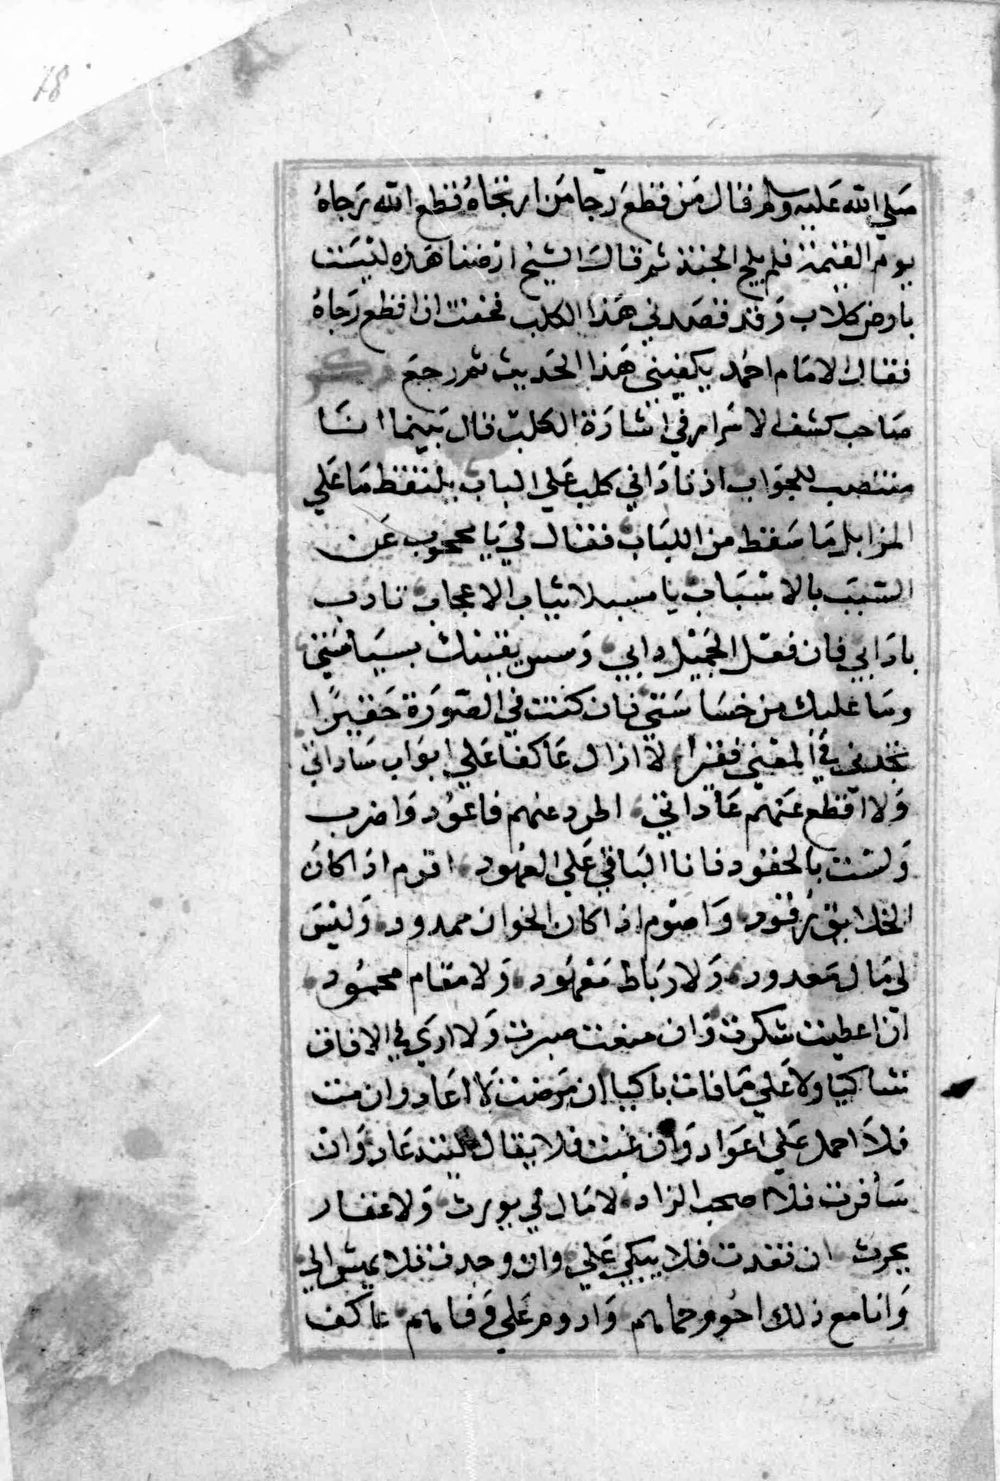 18
صلي الله عليه وسلم فقال من قطع رجا من ارتجاه قطع الله رجاه
يوم القيمة فلم يلج الجنة ثم قال الشيخ ارضنا هذه ليست
بارض كلاب وقد قصدني هذا الكلب فخفت ان اقطع رجاه
فقال الامام احمد يكفيني هذا الحديث ثم رجع
صاحب كشف الاسرار في اشارة الكلب قال بينما انا
منتصب للجواب اذ ناداني كلب علي الباب يلتقط ما علي
المزابل ما سقط من اللباب فقال لي يا محجوب عن
السبب بالاسباب يا مسبلا ثياب الاعجاب تادب
بادابي فان فعل الجميل دابي وسس يقينك بسياستي
وما عليك من خساستي فان كنت في الصورة حقيرا
تجدني في المعني فقيرا لا ازال عاكفا علي ابواب ساداتي
ولا اقطع عنهم عاداتي اطرد عنهم فاعود واضرب
ولست بالحقود فانا الباقي علي العهود اقوم اذا كان
الخلايق رقود واصوم اذا كان الخوان ممدود وليس
لي مال معدود ولا رباط معهود ولا مقام محمود
ان اعطيت شكرت وان منعت صبرت ولا اري في الافاق
شاكيا ولا علي ما فات باكيا ان مرضت لا اعاد وان مت
فلا احمل علي اعواد وان غبت فلا يقال ليته عاد وان
سافرت فلا اصحب الزاد لا مال لي يورث ولا عقار
يحرث ان فقدت فلا يبكي علي وان وجدت فلا يمش الي
وانا مع ذلك احوم حماهم وادوم علي وفاهم عاكف